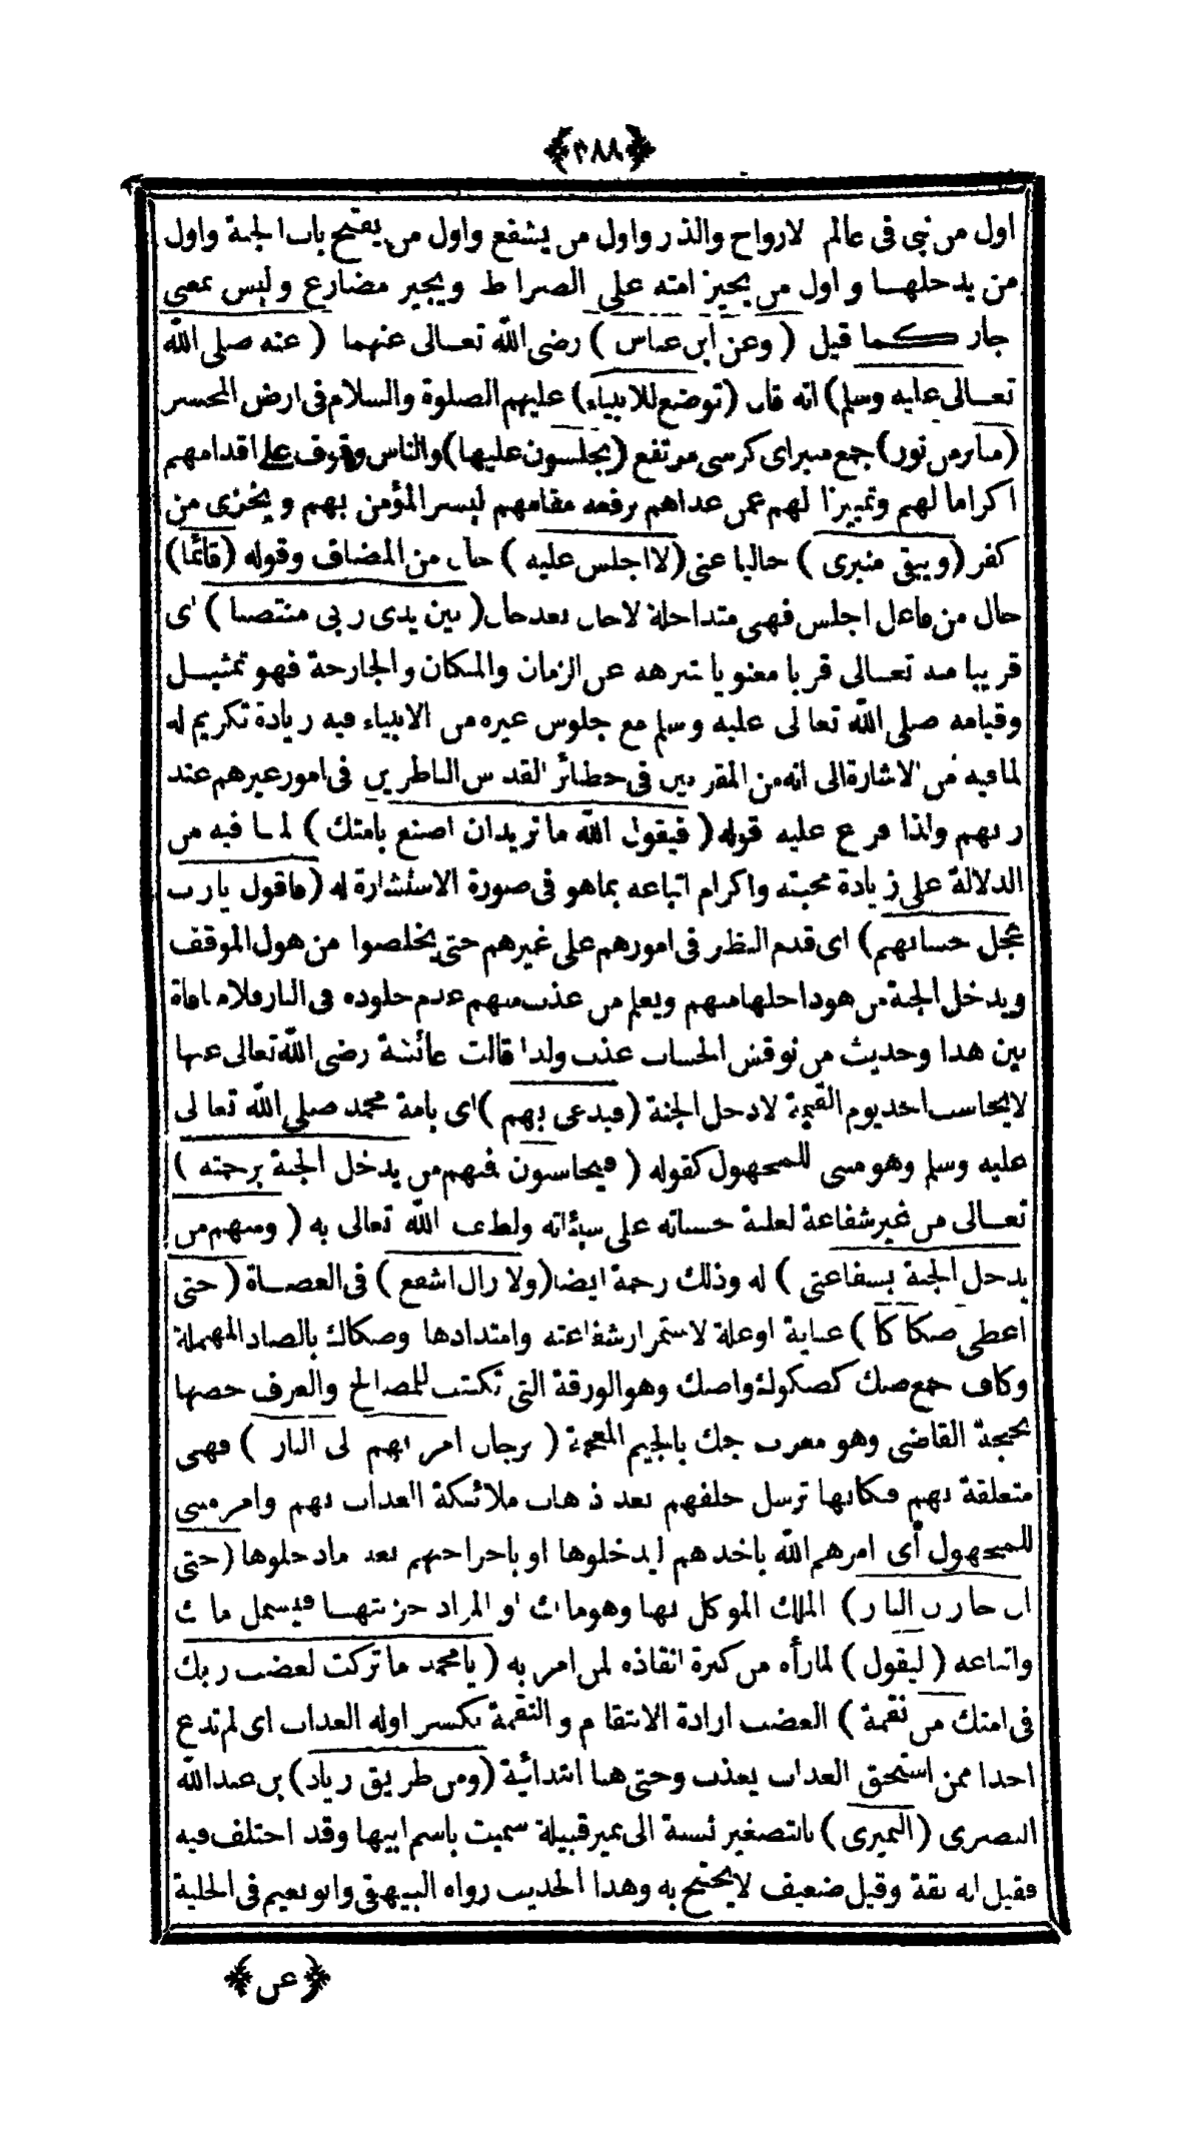 ﴿٣٨٨﴾
اول من نبى فى عالم الارواح والذر واول من يشفع واول من يفتح باب الجنة واول
من يدخلها واول من يجيز امته على الصراط ويجيز مضارع وليس بمعنى
جاز كما قيل (وعن ابن عباس) رضى الله تعالى عنهما (عنه صلى الله
تعالى عليه وسلم) انه قال (توضع للانبياء) عليهم الصلوة والسلام فى ارض المحشر
(منابر من نور) جمع منبر اى كرسى مرتفع (يجلسون عليها) والناس وقوف على اقدامهم
اكراما لهم وتمييزا لهم عمن عداهم برفعه مقامهم ليسر المؤمن بهم ويخزى من
كفر (ويبقى منبرى) خاليا عنى (لا اجلس عليه) حال من المضاف وقوله (قائما)
حال من فاعل اجلس فهى متداخلة لاحال بعد حال (بين يدى ربى منتصبا) اى
قريبا منه تعالى قربا معنويا تنزهه عن الزمان والمكان والجارحة فهو تمثيل
وقيامه صلى الله تعالى عليه وسلم مع جلوس غيره من الانبياء فيه زيادة تكريم له
لما فيه من الاشارة الى انه من المقربين فى حظائر القدس الناظرين فى امور غيرهم عند
ربهم ولذا فرع عليه قوله (فيقول الله ما تريد ان اصنع بامتك) لما فيه من
الدلالة على زيادة محبته واكرام اتباعه بما هو فى صورة الاستشارة له (فاقول يارب
عجل حسابهم) اى قدم النظر فى امورهم على غيرهم حتى يخلصوا من هول الموقف
ويدخل الجنة من هو داخلها منهم ويعلم من عذب منهم عدم خلوده فى النار فلا منافاة
بين هذا وحديث من نوقش الحساب عذب ولذا قالت عائشة رضى الله تعالى عنها
لايحاسب احد يوم القيمة الا دخل الجنة (فيدعى بهم) اى بامة محمد صلى الله تعالى
عليه وسلم وهو مبنى للمجهول كقوله (فيحاسبون فمنهم من يدخل الجنة برحمته)
تعالى من غير شفاعة لغلبة حسناته على سيآته ولطف الله تعالى به (ومنهم من
يدخل الجنة بشفاعتى) له وذلك رحمة ايضا (ولا زال اشفع) فى العصاة (حتى
اعطى صكاكا) غاية او علة لاستمرار شفاعته وامتدادها وصكاك بالصاد المهملة
وكاف جمع صك كصكوك واصك وهو الورقة التى تكتب للمصالح والعرف خصها
بحجة القاضى وهو معرب جك بالجيم المعجمة (برجال امر بهم الى النار) فهى
متعلقة بهم فكانها ترسل خلفهم بعد ذهاب ملائكة العذاب بهم وامر مبنى
للمجهول أى امرهم الله باخذهم ليدخلوها او باخراجهم بعد مادخلوها (حتى
ان خازن النار) الملك الموكل بها وهو مالك او المراد خزنتها فيشمل مالك
واتباعه (ليقول) لما رأه من كثرة انقاذه لمن امر به (يا محمد ما تركت لغضب ربك
فى امتك من نقمة) الغضب ارادة الانتقام والنقمة بكسر اوله العذاب اى لم تدع
احدا ممن استحق العذاب يعذب وحتى هنا ابتدائية (ومن طريق زياد) بن عبد الله
البصرى (النميرى) بالتصغير نسبة الى نمير قبيلة سميت باسم ابيها وقد اختلف فيه
فقيل انه ثقة وقيل ضعيف لايحتج به وهذا الحديث رواه البيهقى وابو نعيم فى الحلية
﴿عن﴾